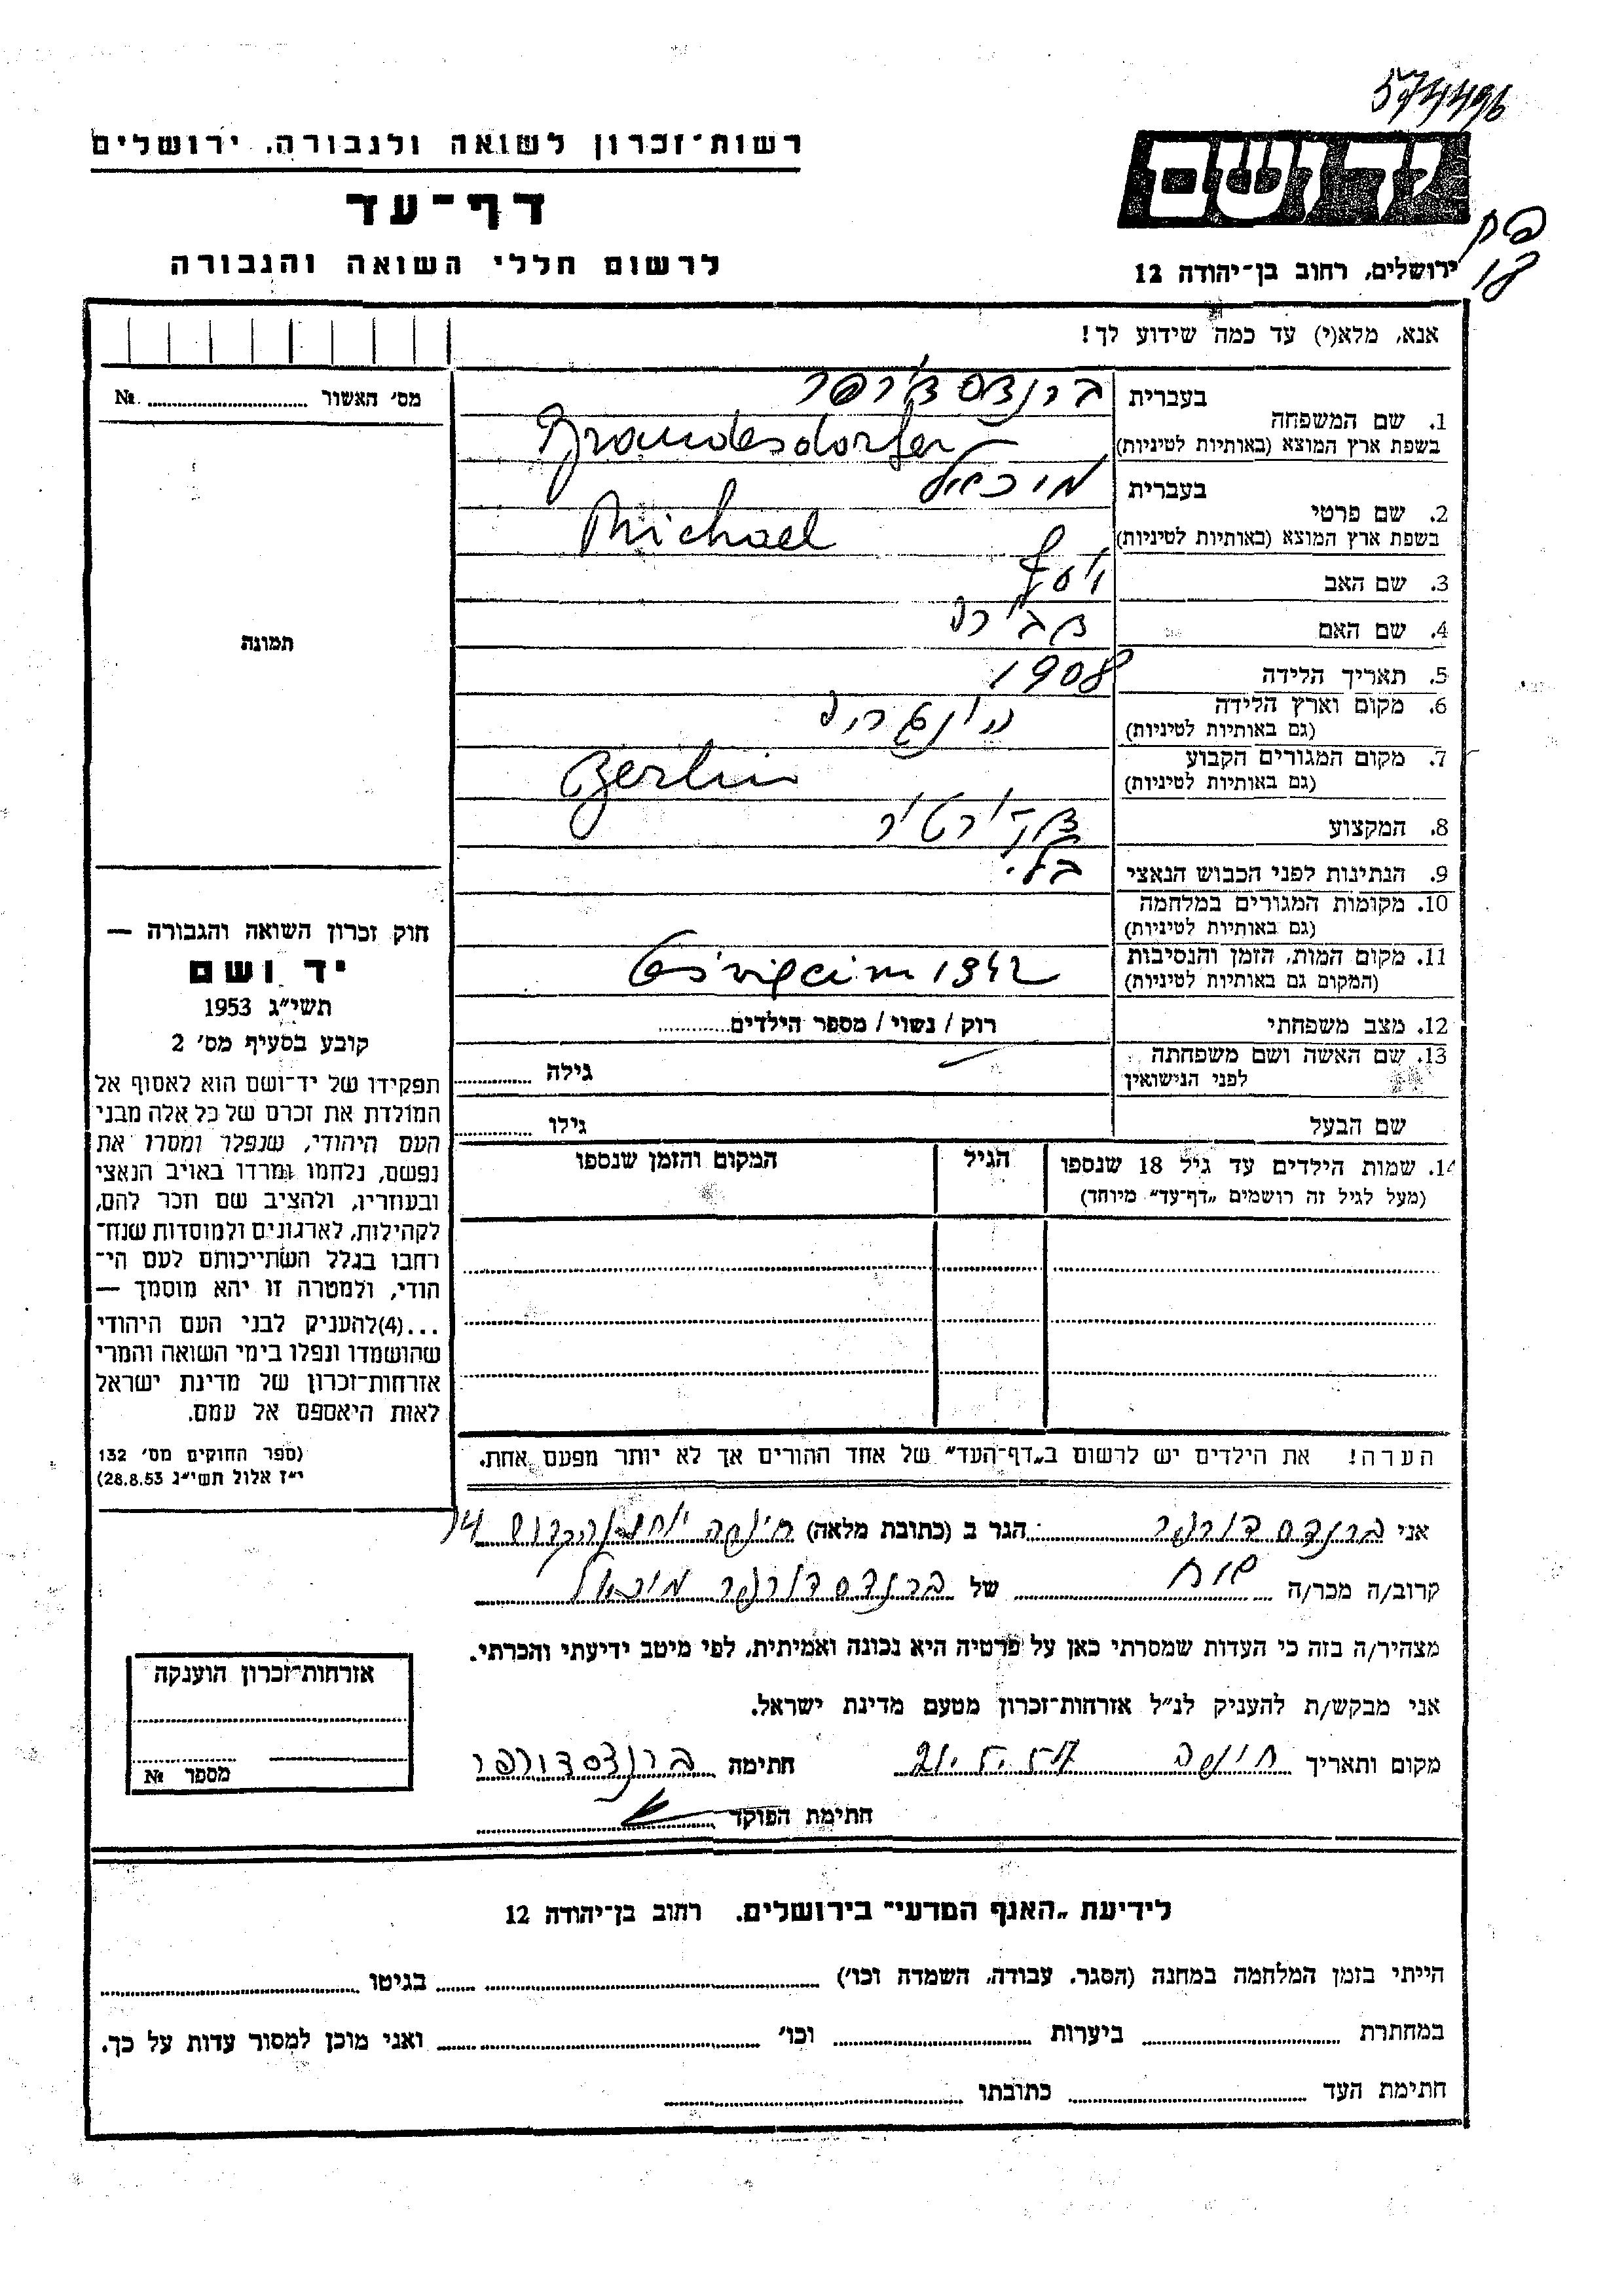 574496
רשות־זכרון לשואה ולגבורה, ירושלים
יד ושם
דף־עד
לרשום חללי השואה והגבורה
ירושלים, רחוב בן־יהודה 12
אנא, מלא(י) עד כמה שידוע לך!
מס׳ האשור № 
1. שם המשפחה
בעברית
בשפת ארץ המוצא (באותיות לטיניות)
Brandesdorfer
2. שם פרטי
בעברית מיכאל
בשפת ארץ המוצא (באותיות לטיניות) Michael
3. שם האב
4. שם האם
5. תאריך הלידה 1908
6. מקום וארץ הלידה
(גם באותיות לטיניות)
7. מקום המגורים הקבוע Berlin
(גם באותיות לטיניות)
8. המקצוע
9. הנתינות לפני הכבוש הנאצי
10. מקומות המגורים במלחמה
(גם באותיות לטיניות)
11. מקום המות, הזמן והנסיבות 1942
(המקום גם באותיות לטיניות)
12. מצב משפחתי רוק / נשוי / מספר הילדים
13. שם האשה ושם משפחתה
לפני הנישואין גילה
שם הבעל גילו
תמונה
חוק זכרון השואה והגבורה —
יד ושם
תשי״ג 1953
קובע בסעיף מס׳ 2
תפקידו של יד־ושם הוא לאסוף אל
המולדת את זכרם של כל אלה מבני
העם היהודי, שנפלו ומסרו את
נפשם, נלחמו ומרדו באויב הנאצי
ובעוזריו, ולהציב שם וזכר להם,
לקהילות, לארגונים ולמוסדות שנח־
רחבו בגלל השתייכותם לעם הי־
הודי, ולמטרה זו יהא מוסמך —
...(4)להעניק לבני העם היהודי
שהושמדו ונפלו בימי השואה והמרי
אזרחות־זכרון של מדינת ישראל
לאות היאספם אל עמם.
(ספר החוקים מס׳ 132
י״ז אלול תשי״ג 28.8.53)
14. שמות הילדים עד גיל 18 שנספו
(מעל לגיל זה רושמים „דף־עד״ מיוחד)
הגיל
המקום והזמן שנספו
הערה! את הילדים יש לרשום ב„דף־העד״ של אחד ההורים אך לא יותר מפעם אחת.
אני ברנדסדורפר הגר ב (כתובת מלאה) חיפה
קרוב/ה מכר/ה של ברנדסדורפר מיכאל
מצהיר/ה בזה כי העדות שמסרתי כאן על פרטיה היא נכונה ואמיתית, לפי מיטב ידיעתי והכרתי.
אני מבקש/ת להעניק לנ״ל אזרחות־זכרון מטעם מדינת ישראל.
מקום ותאריך חיפה חתימה ברנדסדורפר
חתימת הפוקד
אזרחות־זכרון הוענקה
מספר №
לידיעת „האגף המדעי״ בירושלים. רחוב בן־יהודה 12
הייתי בזמן המלחמה במחנה (הסגר, עבודה, השמדה וכו׳) בגיטו
במחתרת ביערות וכו׳ ואני מוכן למסור עדות על כך.
חתימת העד כתובתו